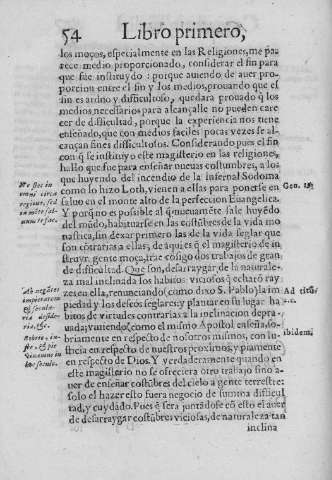 54 Libro primero,
los moços, especialmente en las Religiones, me pa-
rece medio proporcionado, considerar el fin para
que fue instituydo: porque auiendo de auer pro-
porcion entre el fin y los medios, prouando que es
fin es arduo y dificultoso, quedara prouado q̃ los
medios necessarios para alcançalle no pueden care
cer de dificultad, porque la experiencia nos tiene
enseñado, que con medios faciles pocas vezes se al-
cançan fines dificultosos. Considerando pues el fin
con q̃ se instituyo este magisterio en las religiones,
hallo que fue para enseñar nueuas costumbres, a los
que huyendo del incendio de la infernal Sodoma
como lo hizo Loth, vienen a ellas para ponerse en
saluo en el monte alto de la perfeccion Euangelica.
Y porq̃ no es posible al q̃ nueuamẽte sale huyẽdo
del mũdo, habituarse en las costũbres de la vida mo
nastica, sin dexar primero las de la vida seglar que
son cõtrarias a ellas; de aqui es q̃ el magisterio de in-
struyr gente moça, trae cõsigo dos trabajos de gran
de dificultad. Que son, desarraygar de la naturale-
za mal inclinada los habitos viciosos q̃ echarõ ray
zes en ella, renunciando (como dixo S. Pablo) la im
piedad y los deseos seglares: y plantar en su lugar ha
bitos de virtudes contrarias a la inclinacion depra-
uada, viuiendo, como el mismo Apostol enseña, so-
briamente en respecto de nosotros mismos, con iu-
sticia en respecto de nuestros proximos, y piamente
en respecto de Dios. Y verdaderamente quando en
este magisterio no se ofreciera otro trabajo sino a-
uer de enseñar costũbres del cielo a gente terrestre:
solo el hazer esto fuera negocio de summa dificul
tad, y cuydado. Pues q̃ sera juntãdose cõ esto el auer
de desarraygar costũbres viciosas, de naturaleza tan
inclina
Gen. 19.
Ad titũ
2.
ibidem.
Abnegãtes
impietatem
& secula-
ria deside-
ria, &c.
Sobriè, iu-
stè, & piè
viuamus in
hoc seculo.